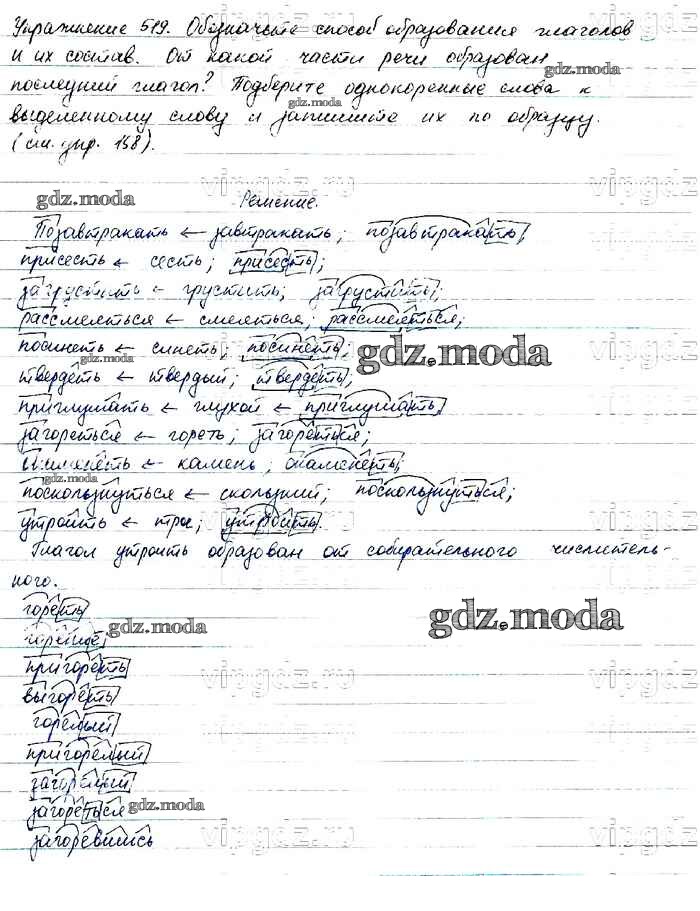 Упражнение 519. Обозначьте способ образования глаголов
и их состав. От какой части речи образован
последний глагол? Подберите однокоренные слова к
выделенному слову и запишите их по образцу.
(см. упр. 158).
Решение.
Позавтракать ← завтракать; позавтракать;
присесть ← сесть; присесть;
загрустить ← грустить; загрустить;
рассмеяться ← смеяться; рассмеяться;
посинеть ← синеть; посинеть;
твердеть ← твердый; твердеть;
приглушать ← глухой ← приглушать;
загореться ← гореть; загореться;
окаменеть ← камень; окаменеть;
поскользнуться ← скользкий; поскользнуться;
утроить ← трое; утроить.
Глагол утроить образован от собирательного числитель-
ного.
гореть
горение
пригореть
выгореть
горелый
пригорелый
загорелый
загореться
загоревшись
gdz.moda
gdz.moda
gdz.moda
gdz.moda
gdz.moda
gdz.moda
gdz.moda
gdz.moda
gdz.moda
vipgdz.ru
vipgdz.ru
vipgdz.ru
vipgdz.ru
vipgdz.ru
vipgdz.ru